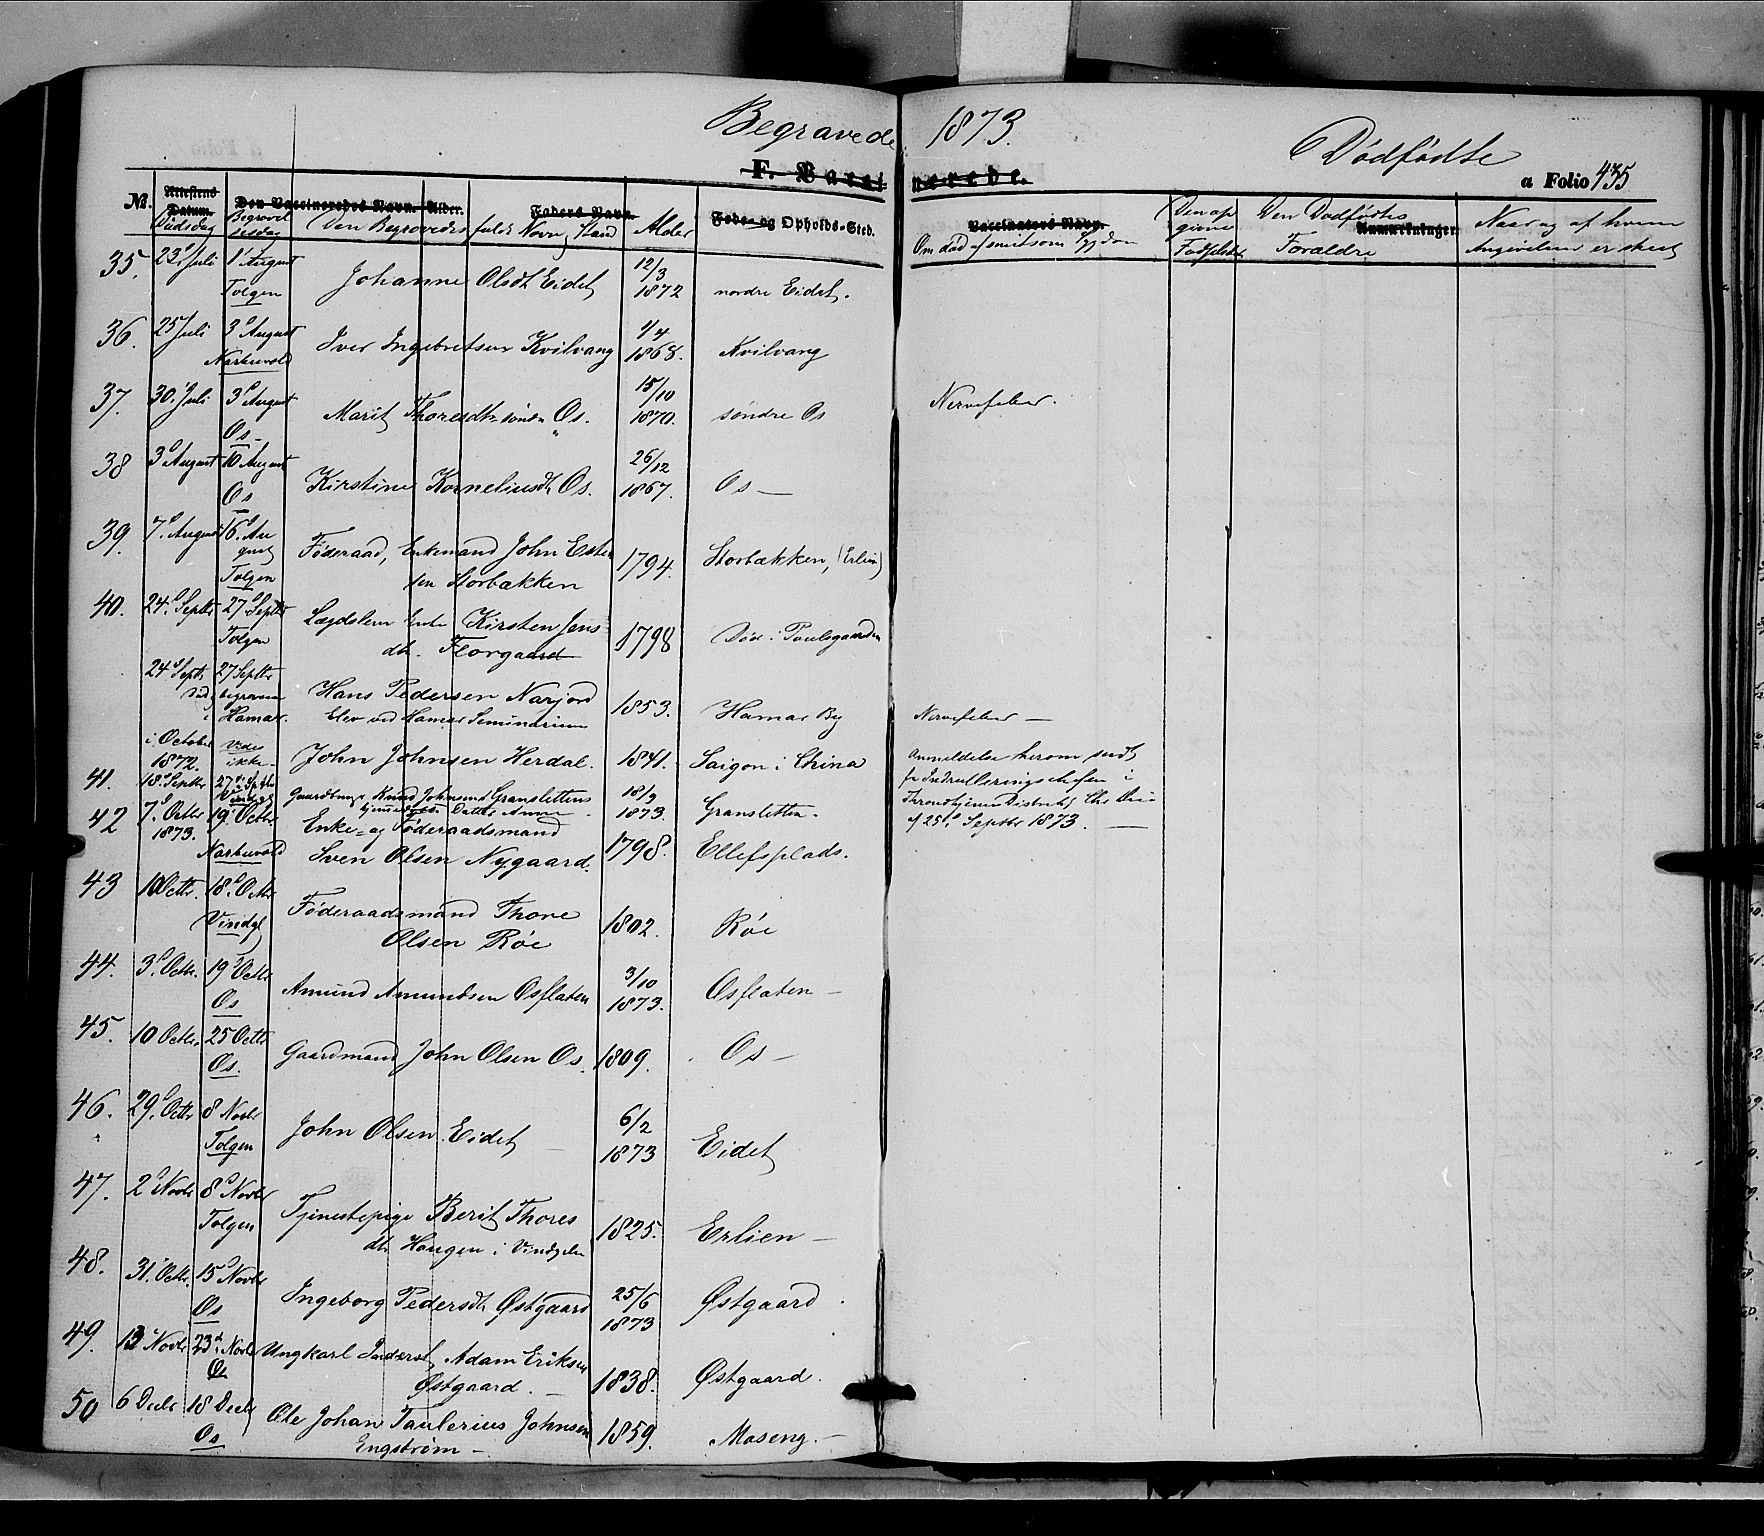 Begravede 1873.
Dødfødte
F. Vaccinerede.
a Folio 435
No. Attestens Datum. Den Vaccineredes Navn. Alder. Faders Navn. Føde- og Opholds-Sted. Vaccinators Navn. Anmærkninger.
Dødsdag Begravelsesdag Den Begravedes fulde Navn, Stand Alder
Den Dødfødtes Forældre
Naar og af hvem Angivelsen er skeet
35. 23. Juli 1 August Tolgen Johanne Olsdt Eidet 12/3 1872 nordre Eidet.
36. 25 Juli 3 August Narbuvold Iver Ingebretsen Kvilvang 1/4 1868. Kvilvang
37. 30. Juli 3 August Os - Marit Thoresdtr. søndr. Os. 15/10 1870. søndre Os Nervefeber.
38 3 August 10 August Os Kirstine Korneliusdt. Os. 26/12 1867. Os -
39. 7. August 16. August Tolgen Føderaad, Enkemand John Estensen Storbækken 1794. Storbækken, (Erlien)
40. 24. Septbr 27. Septbr Tolgen Lægdslem Enke Kirsten Jensdtr. Florgaard 1798 Død i Poulsgaarden
24 Septbr Død i 27 Septbr begraven Hamar. Hans Pedersen Narjord
Elev ved Hamar Seminarium 1853. Hamar By Nervefeber -
i October 1872. vides ikke - John Johnsen Herdal. 1841. Saigon i China Anmeldelse herom sendt
fr Indrulleringschefen i
Throndhjems District
af 25. Septbr 1873. -
41. 18. Septbr 27. Septbr Gaardbruger Knud Johnsens Gransletten
hjemmedøbte Datter Anne 18/9 1873. Gransletten.
42 7. Octbr 1873. 19. Octbr Narbuvold Enke- og Føderaadsmand
Sven Olsen Nygaard. 1798. Ellefsplads.
43 10 Octbr. 18. Octbr Vindgl Føderaadsmand Thore
Olsen Røe 1802. Røe
44. 3. Octbr. 19 Octbr Os Amund Amundsen Osflaten 3/10 1873. Osflaten -
45. 10 Octbr. 25 Octbr Os. Gaardmand John Olsen Os. 1809. Os -
46. 29. Octbr 8 Novbr Tolgen John Olsen Eidet 6/2 1873 Eidet
47. 2 Novbr 8 Novbr Tolgen Tjenestepige Berit Thores
dtr. Haugen i Vindgelen 1825. Erlien -
48. 31. Octbr. 15 Novbr Os Ingeborg Pedersdt. Østgaard 25/6 1873 Østgaard.
49. 13 Novbr 23d Novbr Os Ungkarl Inderst Adam Eriksen
Østgaard. - 1838. Østgaard.
50 6 Decbr 18 Decbr Os Ole Johan Paulerius Johnsen
Engstrøm - 1859. Moseng. -